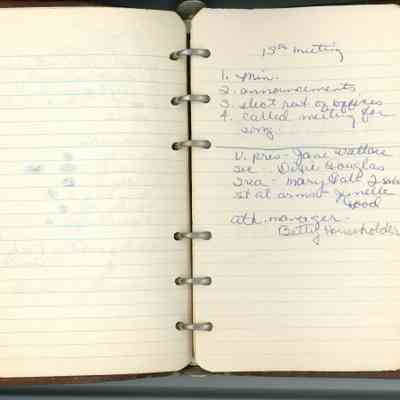 15th meeting
1. Min.
2. announcements
3. elect rest of offices
4. called meeting for
song.
V. pres - Jane Wallace
Sec - Dixie Douglas
Trea - Mary Gatt
St at arms - Jenelle
Good
ath. manager -
Betty Householder